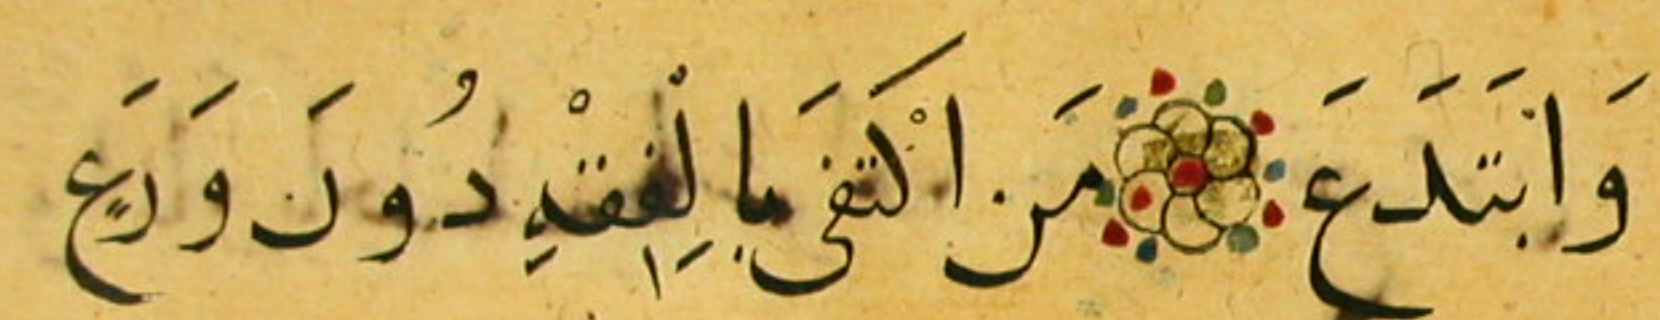 وَابْتَدَعَ مَن اكْتَفَى بِالْفِقْهِ دُونَ وَرَعٍ